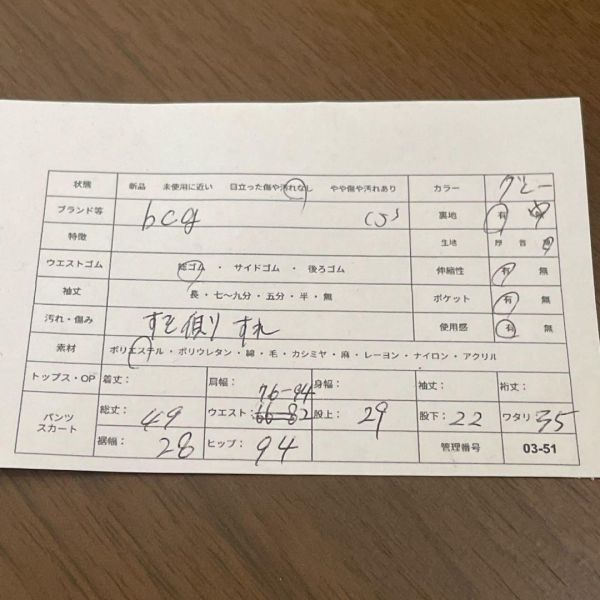 状態 新品 未使用に近い 目立った傷や汚れなし やや傷や汚れあり カラー グレー
ブランド等 bcg 裏地 有 無
特徴 生地 厚 普
ウエストゴム 総ゴム ・ サイドゴム ・ 後ろゴム 伸縮性 有 無
袖丈 長 ・ 七〜九分 ・ 五分 ・ 半 ・ 無 ポケット 有 無
汚れ・傷み すそ すれ 使用感 有 無
素材 ポリエステル ・ ポリウレタン ・ 綿 ・ 毛 ・ カシミヤ ・ 麻 ・ レーヨン ・ ナイロン ・ アクリル
トップス・OP 着丈： 肩幅： 身幅： 袖丈： 裄丈：
76-94
パンツ スカート 総丈： 49 ウエスト： 66-82 股上： 29 股下： 22 ワタリ： 35
裾幅： 28 ヒップ： 94 管理番号 03-51